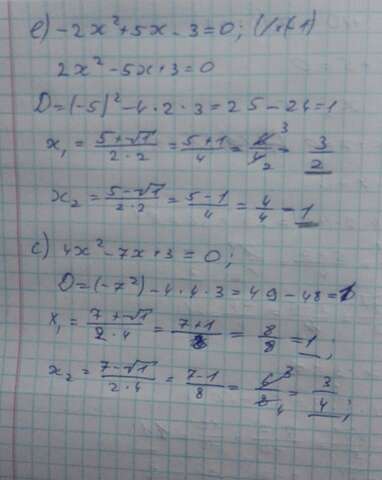 e) -2x²+5x-3=0; (/·(-1)
2x²-5x+3=0
D=(-5)²-4·2·3=25-24=1
x₁=(5+√1)/(2·2)=(5+1)/4=6/4=3/2
x₂=(5-√1)/(2·2)=(5-1)/4=4/4=1
c) 4x²-7x+3=0;
D=(-7²)-4·4·3=49-48=1
x₁=(7+√1)/(2·4)=(7+1)/8=8/8=1;
x₂=(7-√1)/(2·4)=(7-1)/8=6/8=3/4;